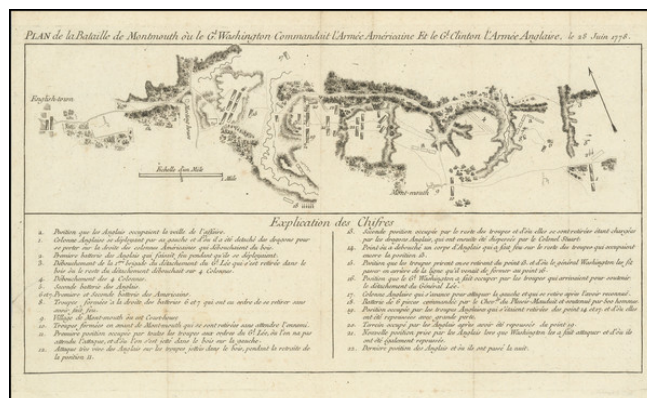 PLAN de la Bataille de Montmouth où le Gl. Washington Commandait l'Armée Américaine Et le Gl. Clinton l'Armée Anglaire, le 28 Juin 1778.
English-town
Meeting house
Echelle d'un Mile
1 Mile
Mont-mouth
Explication des Chifres
Position que les Anglais occupaient la veille de l'affaire.
1. Colonne Anglaise se déployant par sa gauche et d'où il a été detaché des dragons pour
se porter sur la droite des colonnes Américaines qui débouchaient du bois.
2. Premiere batterie des Anglais qui faisait feu pendant qu'ils se deployaient.
3. Débouchement de la 1ere brigade du détachement du Gl. Lée qui s'est retirée dans le
bois où le reste du détachement débouchait sur 4 Colonnes.
4. Débouchement des 4 Colonnes.
5. Seconde batterie des Anglais.
6 et 7. Premiere et Seconde batterie des Americains.
8. Troupes formées à la droite des batteries 6 et 7 qui ont eu ordre de se retirer sans
avoir fait feu.
9. Village de Mont-mouth où est Court-house.
10. Troupes formées en avant de Mont-mouth qui se sont retirées sans attendre l'ennemi.
11. Premiere position occupée par toutes les troupes aux ordres du Gl. Lée, où l'on n'a pas
attendu l'attaque, et d'où l'on s'est jetté dans le bois sur la gauche.
12. Attaque très vive des Anglais sur les troupes jettées dans le bois, pendant la retraite de
la position 11.
13. Seconde position occupée par le reste des troupes et d'où elles se sont retirées étant chargées
par les dragons Anglais, qui ont ensuite été dispersés par le Colonel Stuart.
14. Point où a débouché un corps d'Anglais qui a fait feu sur le reste des troupes qui occupaient
encore la position 13.
15. Position que les troupes prirent en se retirant du point 13. et d'où le général Washington les fit
passer en arriere de la ligne qu'il venait de former au point 16.
16. Position que le Gl. Washington a fait occuper par les troupes qui arrivaient pour soutenir
le détachement du Général Lée.
17. Colonne Anglaise qui s'avance pour attaquer la gauche et qui se retire après l'avoir reconnue.
18. Batterie de 6 pieces commandée par le Chevr. du Plessis-Mauduit et soutenue par 600 hommes.
19. Position occupée par les troupes Anglaises qui s'étaient retirées des points 14 et 17. et d'où elles
ont été repoussées avec grande perte.
20. Terrein occupé par les Anglais après avoir été repoussés du point 19.
21. Nouvelle position prise par les Anglais lors que Washington les a fait attaquer et d'où ils
ont été également repoussés.
22. Derniere position des Anglais et où ils ont passé la nuit.